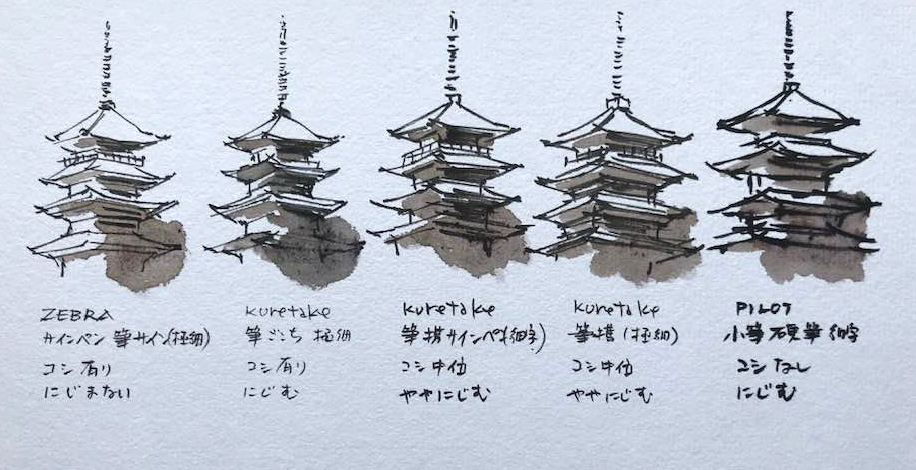 ZEBRA
サインペン 筆サイン(極細)
コシ有り
にじまない
kuretake
筆ごこち 極細
コシ有り
にじむ
kuretake
筆 サインペン(細字)
コシ中位
ややにじむ
kuretake
筆 (極細)
コシ中位
ややにじむ
PILOT
小筆 硬筆 細字
コシなし
にじむ